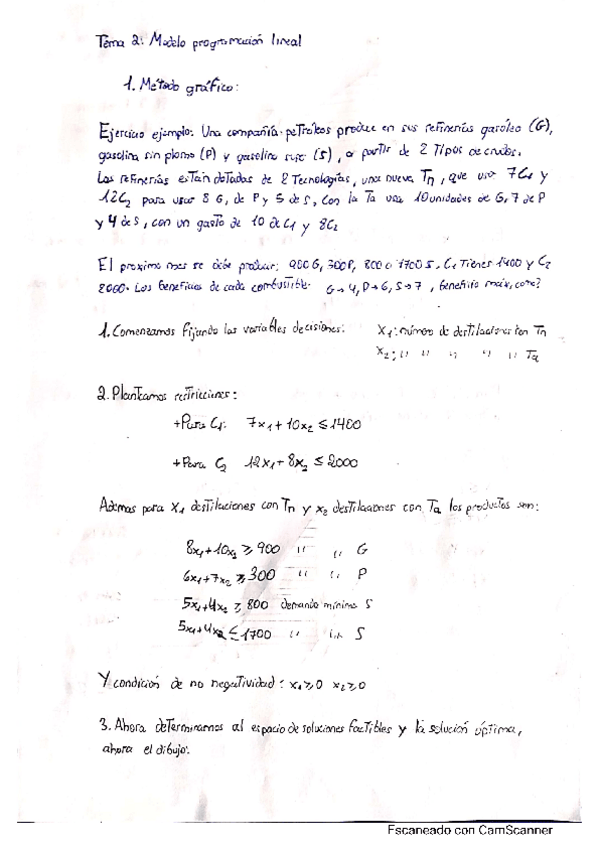 Tema 2: Modelo programación lineal
1. Método gráfico:
Ejercicio ejemplo: Una compañía petróleos produce en sus refinerías gasóleo (G),
gasolina sin plomo (P) y gasolina super (S), a partir de 2 tipos de crudos.
Las refinerías están dotadas de 2 Tecnologías, una nueva Tn, que usa 7C1 y
12C2 para usar 8 G, de P y 5 de S, con la Ta usa 10 unidades de G, 7 de P
y 4 de S, con un gasto de 10 de C1 y 8C2
El proximo mes se debe producir: 900G, 300P, 800 a 1700 S. C1 Tienes 1400 y C2
2000. Los beneficios de cada combustible G→4, P→6, S→7, beneficio máx,
1. Comenzamos fijando las variables decisiones: X1: número de destilaciones con Tn
X2: " " " " " Ta
2. Planteamos restricciones:
+Para C1: 7x1+10x2 ≤ 1400
+Para C2 12x1+8x2 ≤ 2000
Ademas para x1 destilaciones con Tn y x2 destilaciones con Ta los productos son:
8x1+10x2 ≥ 900 " " G
6x1+7x2 ≥ 300 " " P
5x1+4x2 ≥ 800 demanda mínima S
5x1+4x2 ≤ 1700 " " S
Y condición de no negatividad: x1≥0 x2≥0
3. Ahora determinamos al espacio de soluciones factibles y la solución óptima,
ahora el dibujo:
Escaneado con CamScanner